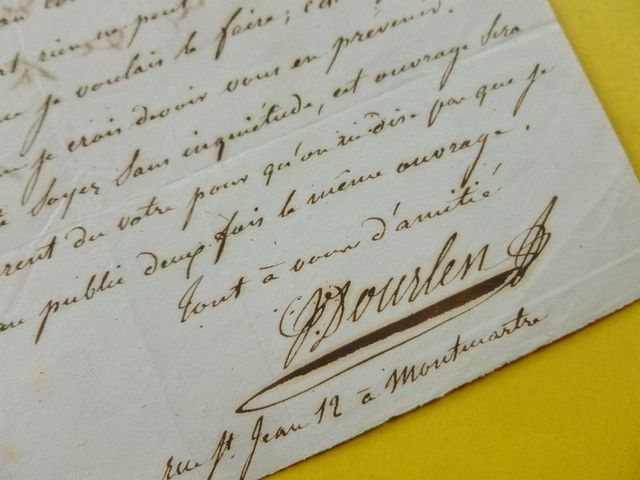 rien ne peut
je voulais le faire; c'est
je crois devoir vous en prévenir.
Soyez Sans inquiétude, cet ouvrage Sera
du votre pour qu'on ne dise pas que je
au public deux fois le même ouvrage.
Tout à vous d'amitié
V. Dourlen
rue St. Jean 12 à Montmartre